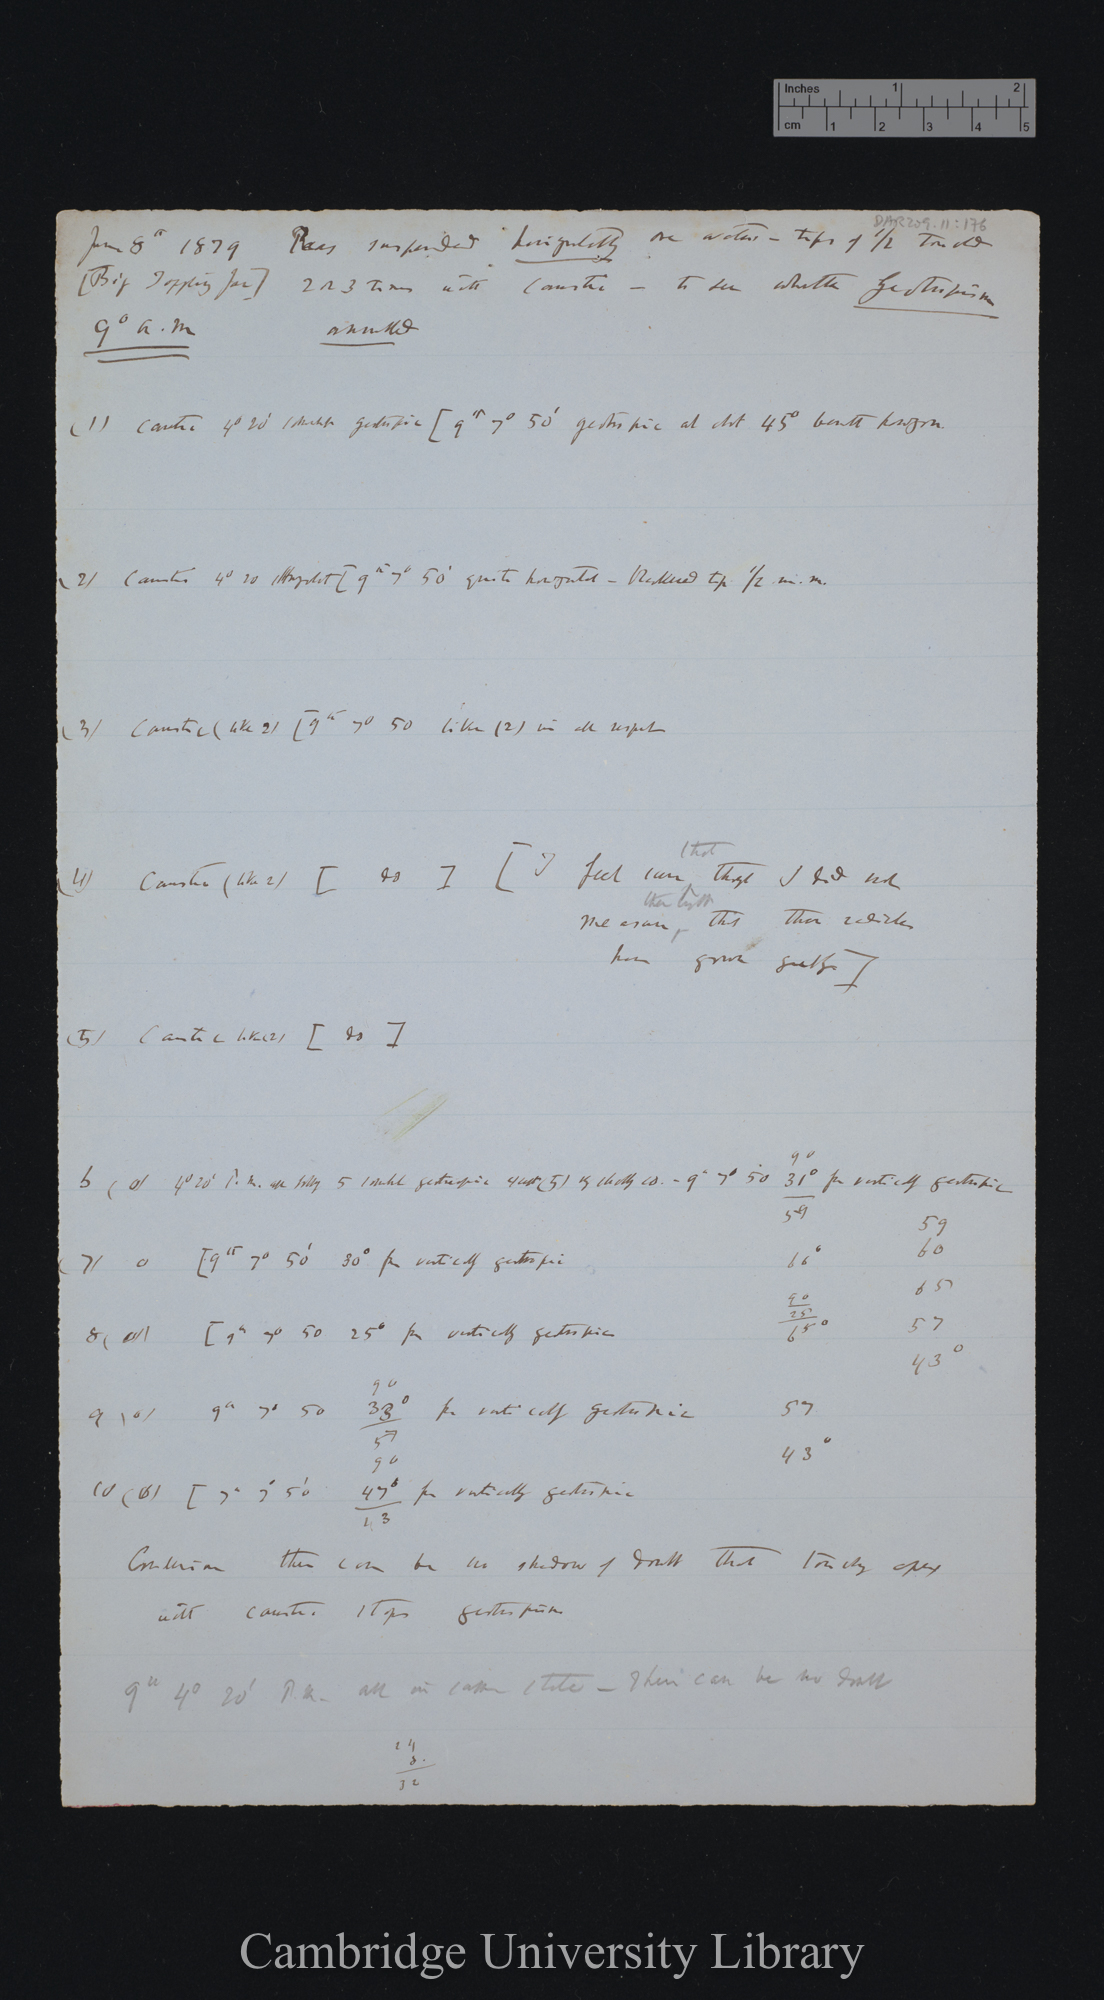 Inches 1 2
cm 1 2 3 4 5
DAR 209.11:176
June 8th 1879 Peas suspended horizontally over water – tips of 1/2 touched
[Big Toppling Jar] 2 or 3 times with caustic – to see whether Geotropism
9° a.m annulled
(1) Caustic 4° 20' geotropic [9th 7° 50' geotropic at abt 45° beneath horizon
(2) Caustic 4° 20 [9th 7° 50' quite horizontal – Blackened tip 1/2 m.m.
(3) Caustic (like 2) [9th 7° 50 like (2) in all respects
(4) Caustic (like 2) [ do ] [I feel sure that though I did not
measure, that these radicles
have grown greatly]
(5) Caustic like (2) [ do ]
90
6 (o) 4° 20' P.m. 5 geotropic – 9th 7° 50 31° from vertically geotropic
59
59
7) o [9th 7° 50' 30° from vertically geotropic 60
65
90
25
8 (o) [9th 7° 50 25° from vertically geotropic 65° 57
43°
90
9 (o) 9th 7° 50 33° from vertically geotropic 57
57
43°
90
10 (o) [ 7° 50' 47° from vertically geotropic
43
Conclusion there can be no shadow of doubt that touching apex
with caustic stops geotropism
9th 4° 20' P.m. all in same state – There can be no doubt
24
8
32
Cambridge University Library